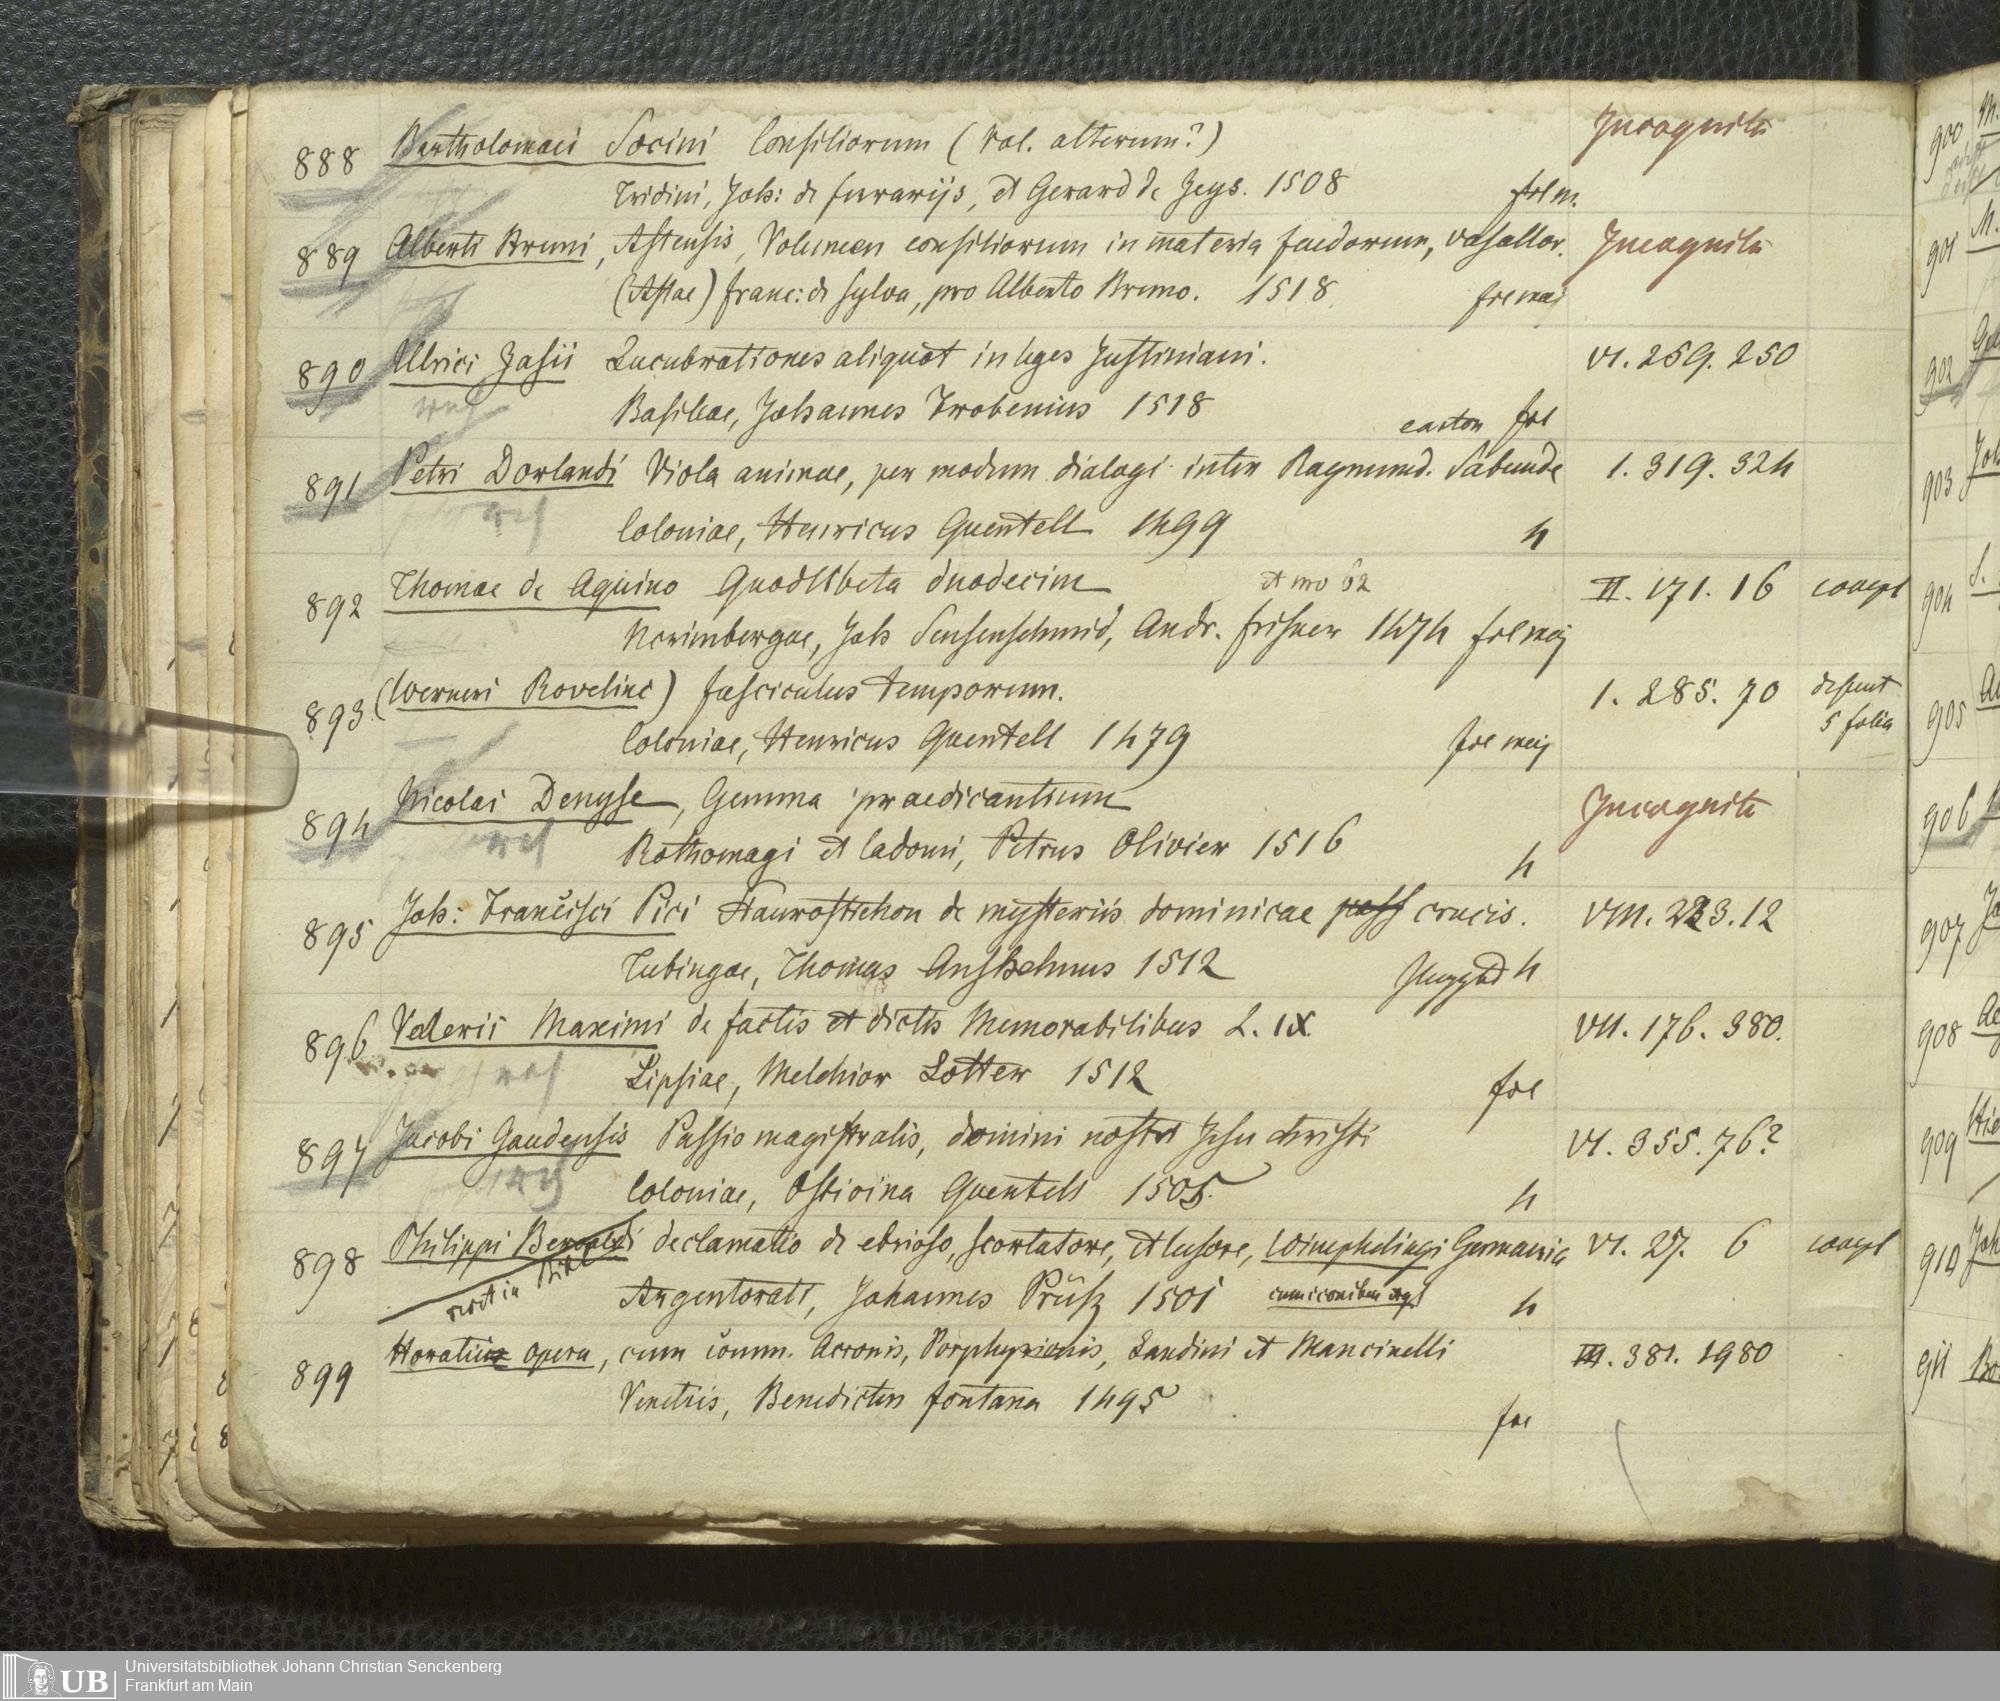 888 Bartholomaei Socini Consiliorum (Vol. alterum?) Incognita
Tridini, Joh: de ferrarijs, et Gerard de Zeys. 1508 fol m.
889 Alberti Bruni, Astensis, Volumen consiliorum in materia feudorum, vasallor. Incognita
(Astae) franc: de sylva, pro Alberto Bruno. 1518 fol maj
890 Ulrici Zasii Lucubrationes aliquot in leges Justiniani. VI. 259. 250
weg Basileae, Johannes Frobenius 1518 carton fol
891 Petri Dorlandi Viola animae, per modum dialogi inter Raymund. Sabunde 1. 319. 324
weg Coloniae, Henricus Quentell 1499 4
892 Thomae de Aquino Quodlibeta duodecim et mo 62 II. 171. 16 compl
Norimbergae, Joh Sensenschmid, Andr. frisner 1474 fol maj
893 (Werneri Rovelinc) fasciculus temporum. 1. 285. 70 desunt
5 folia
Coloniae, Henricus Quentell 1479 fol maj
894 Nicolai Denyse, Gemma praedicantium Incognita
weg Rothomagi et Cadomi, Petrus Olivier 1516 4
895 Joh: Francisci Pici Staurostichon de mysteriis dominicae pass crucis. VIII. 223. 12
Tubingae, Thomas Anshelmus 1512 4
896 Valerii Maximi de factis et dictis Memorabilibus L. IX VII. 176. 380.
weg Lipsiae, Melchior Lotter 1512 fol
897 Jacobi Gaudensis Passio magistralis, domini nostri Jesu christi VI. 355. 76?
weg Coloniae, Quentell 1505. 4
898 Philippi Beroaldi declamatio de ebrioso, scortatore, et lusore, Wimphelingi Germania VI. 27. 6 compl
Argentorati, Johannes Prüsz 1501 4
899 Horatius opera, cum comm. Acronis, Porphyrionis, Landini et Mancinelli III. 381. 1980
Venetiis, Benedictus fontana 1495 fol
900
901
902
903
904
905
906
907
908
909
910
911
Universitätsbibliothek Johann Christian Senckenberg
Frankfurt am Main
UB